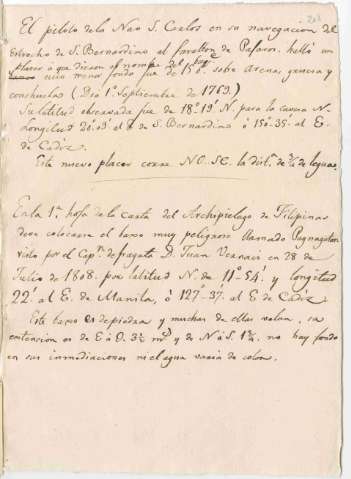 El piloto de la Nao S. Carlos en su navegacion del
estrecho de S. Bernardino al farallon de Pajaros. halló un
placer à que dieron el nombre del
cuio menos fondo fue de 15 bs. sobre Arena, gruesa y
conchuelas (Dia 1º Septiembre de 1769.)
Su latitud observada fue de 18º.19' N. para la
Longitud 20.03' al E de S. Bernardino ò 150.35. al E.
de Cadiz.
Este nuevo placer corre NO. SE. la dist.ª de 3/4 de leguas.
En la 1.ª hoja de la carta del Archipielago de Filipinas
deve colocarse el baxo muy peligroso llamado Pagnagatan
visto por el Cap.n de fragata D. Juan Vernaci en 28 de
Julio de 1808. por latitud N. de 11º-54'. y longitud
22'. al E. de Manila, ò 127º-37'. al E. de Cadiz
Este baxo es de piedra y muchas de ellas velan, su
extencion es de E à O. 3 1/2 m.s y de N à S. 1 3/4. no hay fondo
en sus inmediaciones ni el agua varia de color.